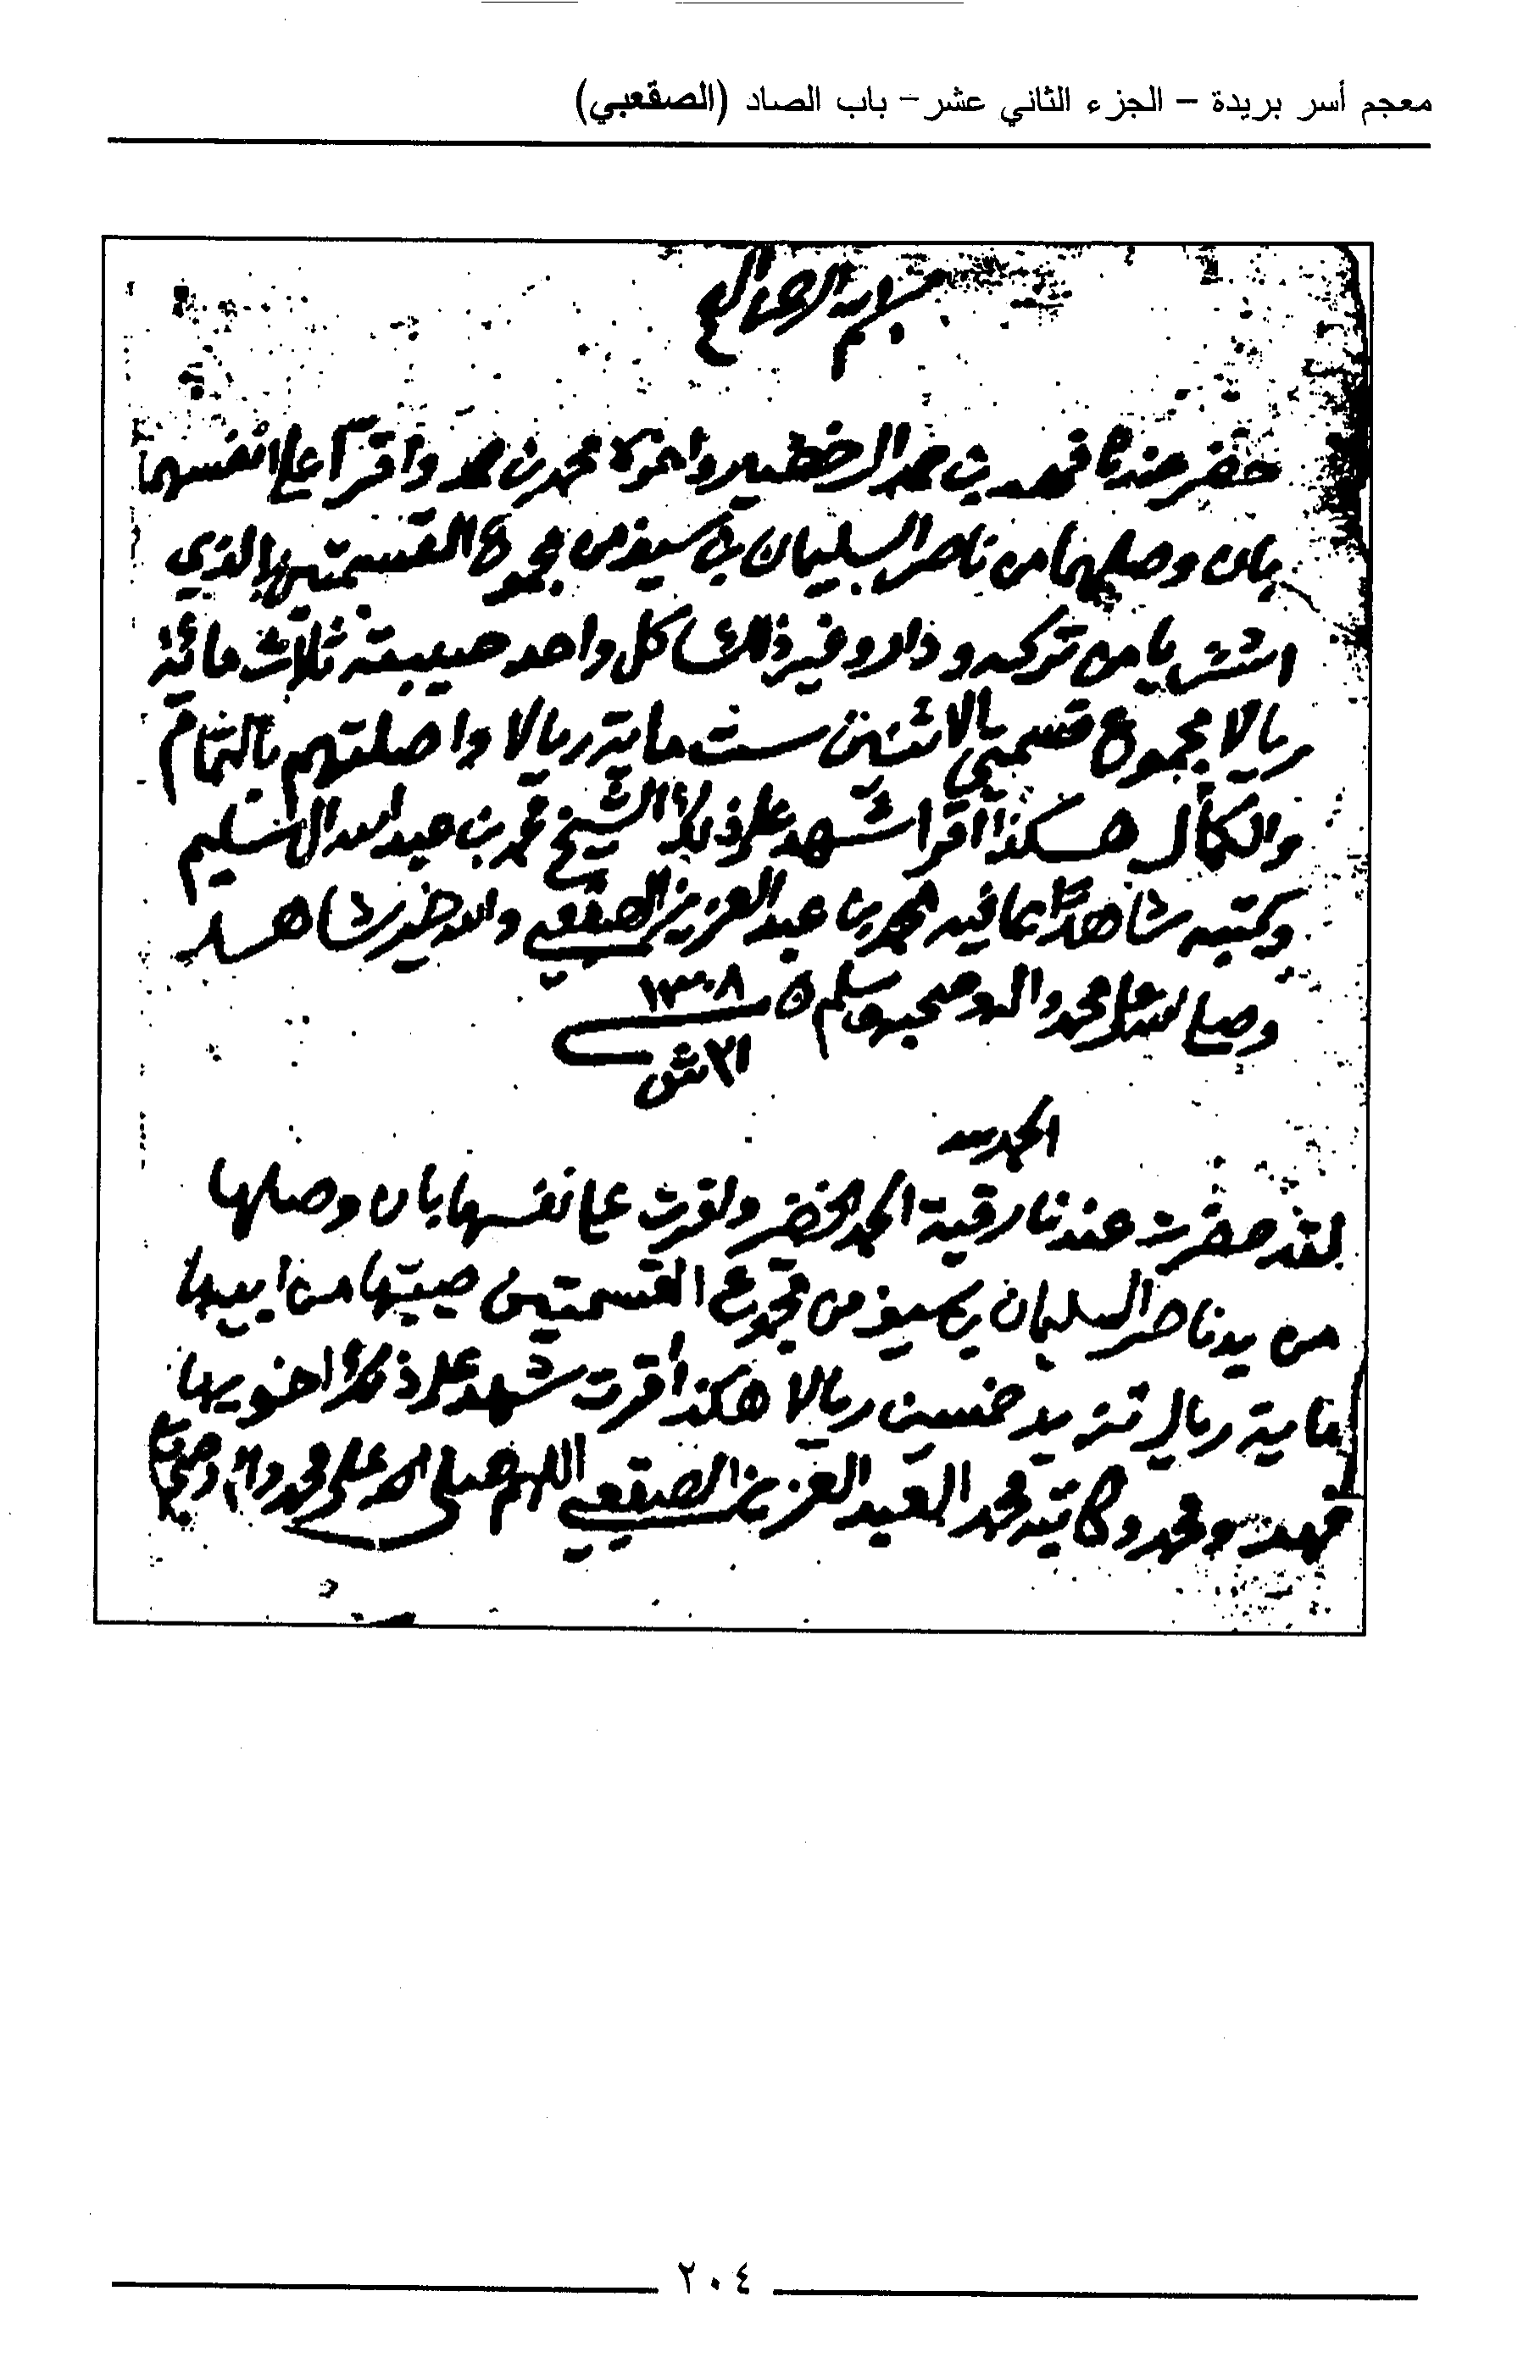 معجم أسر بريدة – الجزء الثاني عشر – باب الصاد (الصقعبي)
بسم الله الرحمن
حضر عندنا فهد بن حمد الخضير واخوه محمد بن حمد واقرا على انفسهما
بان وصلهما من ناصر السليمان بن سيف من مجموع القسمتين الذي
اشتريا من تركه و ذلك كل واحد صيبته ثلاث مائة
ريالا مجموع قسمتي الاثنين ست ماية ريالا واصلتهم بالتمام
والكمال هكذا اقرا شهد على ذلك الشيخ محمد بن عبد الله ال سليم
وكتبه شاهدًا بما فيه محمد بن عبد العزيز الصقعبي والله خير شاهد
وصلى الله على محمد واله وصحبه وسلم
١٣٠٨
ش
الحمد لله
لقد حضرت عندنا رقية الحمد الخضير واقرت على نفسها بان وصلها
من يد ناصر السليمان بن سيف من مجموع القسمتين صيبتها من ابيها
ماية ريال تزيد خمسين ريالا هكذا اقرت شهد على ذلك اخويها
فهد ومحمد وكاتبه محمد العبد العزيز الصقعبي اللهم صلى الله على محمد واله وصحبه
٢٠٤